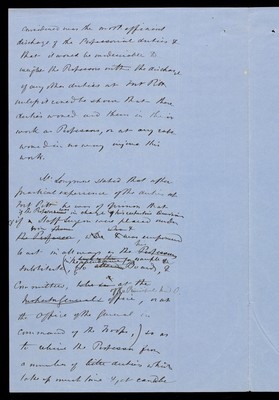 considered was the most efficient
discharge of the Professorial duties &
that it would be undesirable to
weight the Professors with the discharge
of any other duties at Fort Pitt
unless it could be shown that these
duties would aid them in their
work as Professors, or at any rate
would in no way injure this
work.
Mr Longmore stated that after
practical experience of the duties at
Fort Pitt he was of opinion that
if a Staff Surgeon was placed under
the Professor,
to act in all ways as the Professors
substitute, Board, &
Committee, at the
office, or at
the Office of the General in
command of the Troops, so as
to relieve the Professor from
a number of little duties which
take up much time & yet can be